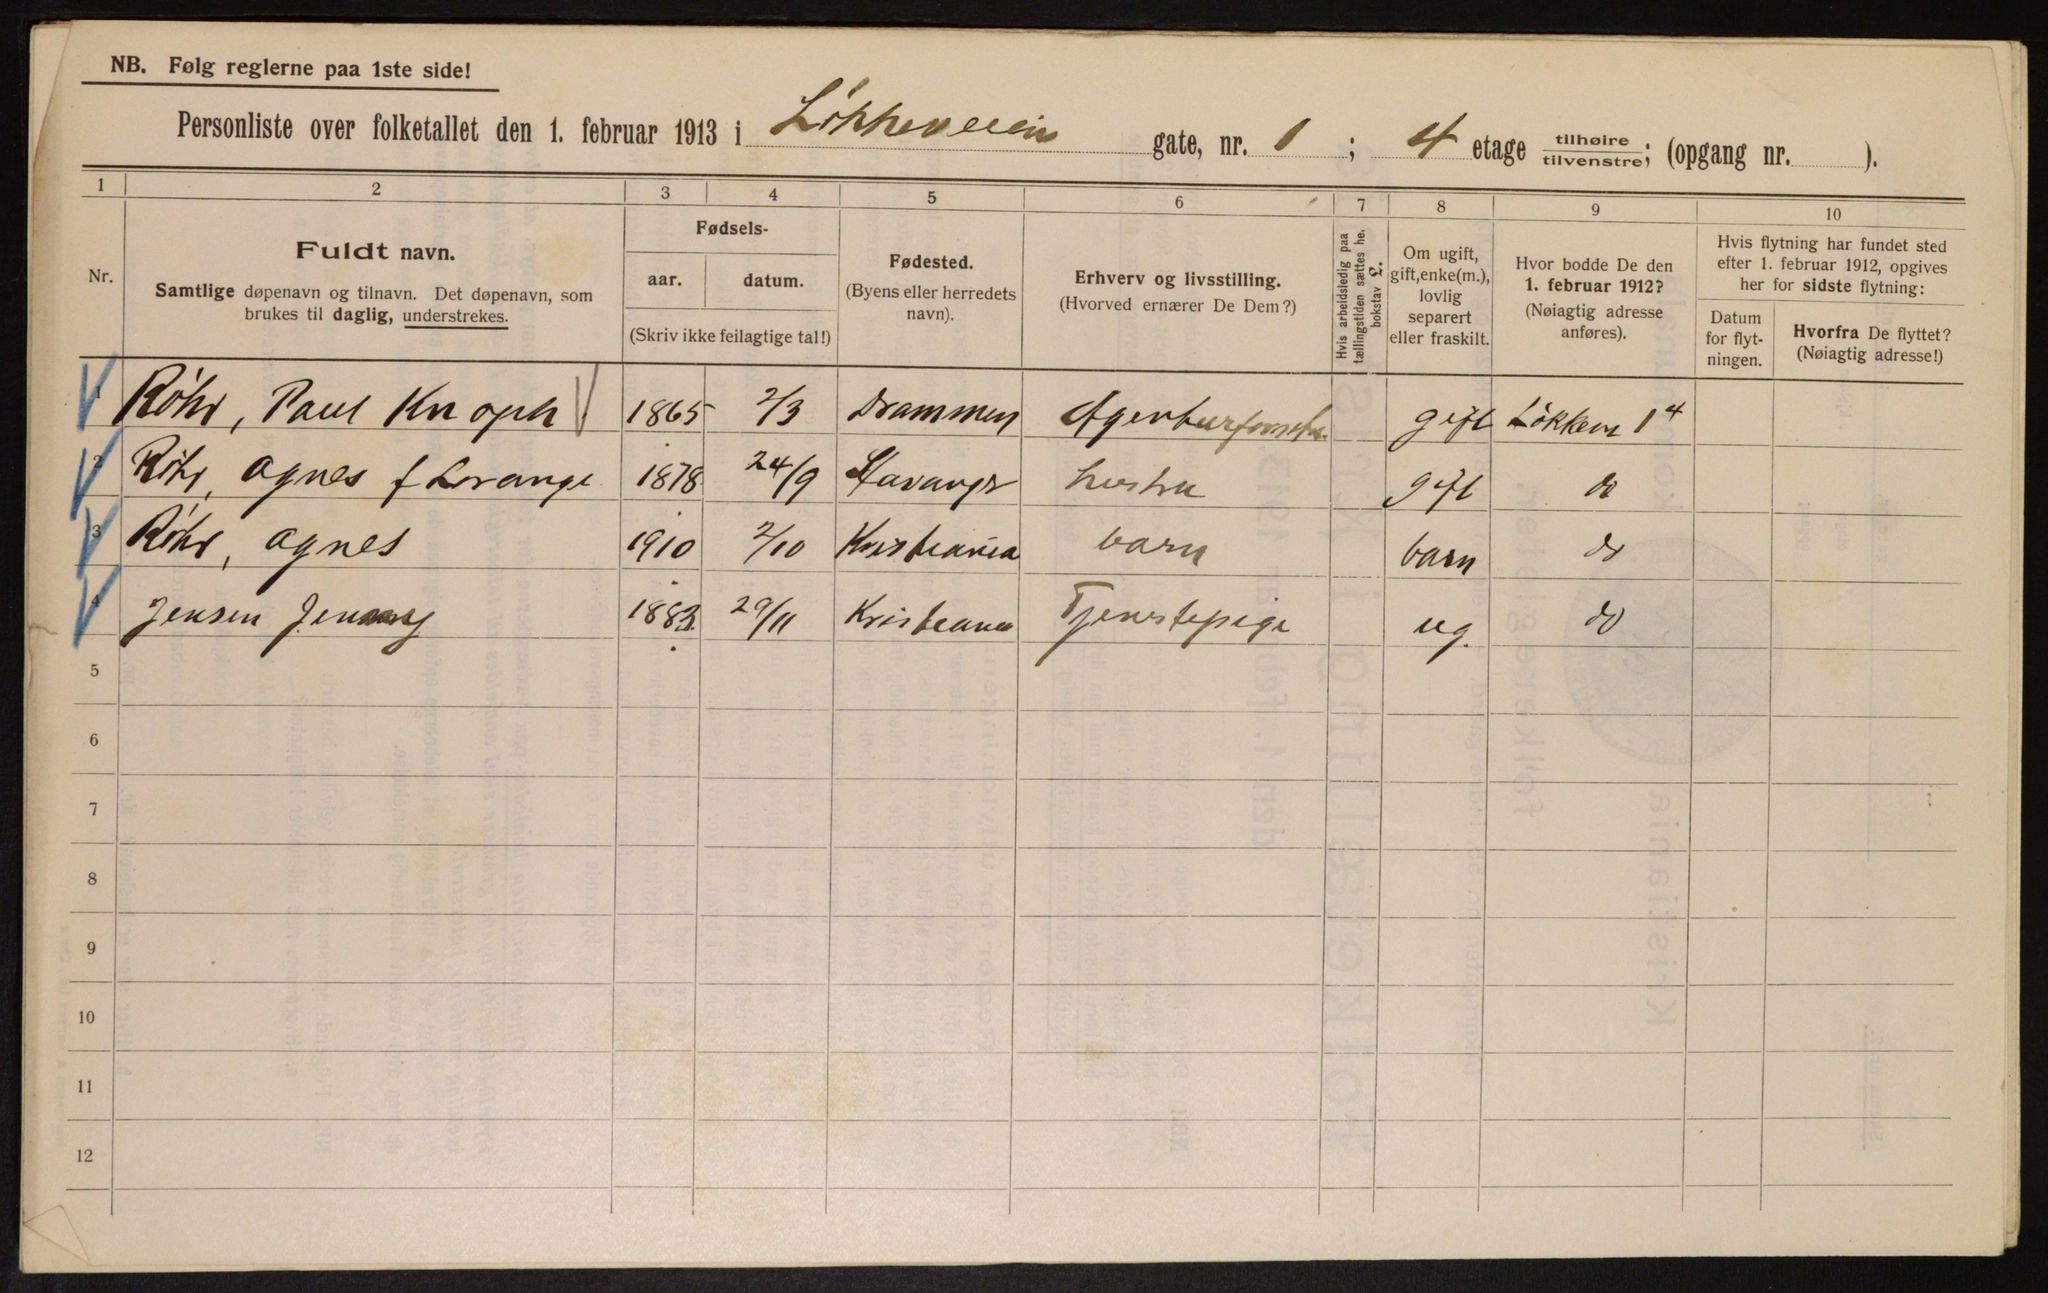 NB. Følg reglerne paa 1ste side!
Personliste over folketallet den 1. februar 1913 i Løkkeveien gate, nr. 1 ; 4 etage tilhøire tilvenstre; (opgang nr. ).
1 2 3 4 5 6 7 8 9 10
Nr.
Fuldt navn.
Samtlige døpenavn og tilnavn. Det døpenavn, som
brukes til daglig, understrekes.
Fødsels-
aar. datum.
(Skriv ikke feilagtige tal!)
Fødested.
(Byens eller herredets
navn).
Erhverv og livsstilling.
(Hvorved ernærer De Dem?)
Hvis arbeidsledig paa
tællingstiden sættes he.
bokstav L.
Om ugift,
gift, enke(m.),
lovlig
separert
eller fraskilt.
Hvor bodde De den
1. februar 1912?
(Nøiagtig adresse
anføres).
Hvis flytning har fundet sted
efter 1. februar 1912, opgives
her for sidste flytning:
Datum
for flyt-
ningen.
Hvorfra De flyttet?
(Nøiagtig adresse!)
1 Röhr, Paul Knoph 1865 2/3 Drammen gift Løkkev 1 4
2 Röhr, Agnes f Lorange 1878 24/9 Stavanger hustru gift do
3 Röhr, Agnes 1910 2/10 Kristiania barn barn do
4 Jensen Jenny 1883 29/11 Kristiania Tjenestepige ug. do
5
6
7
8
9
10
11
12